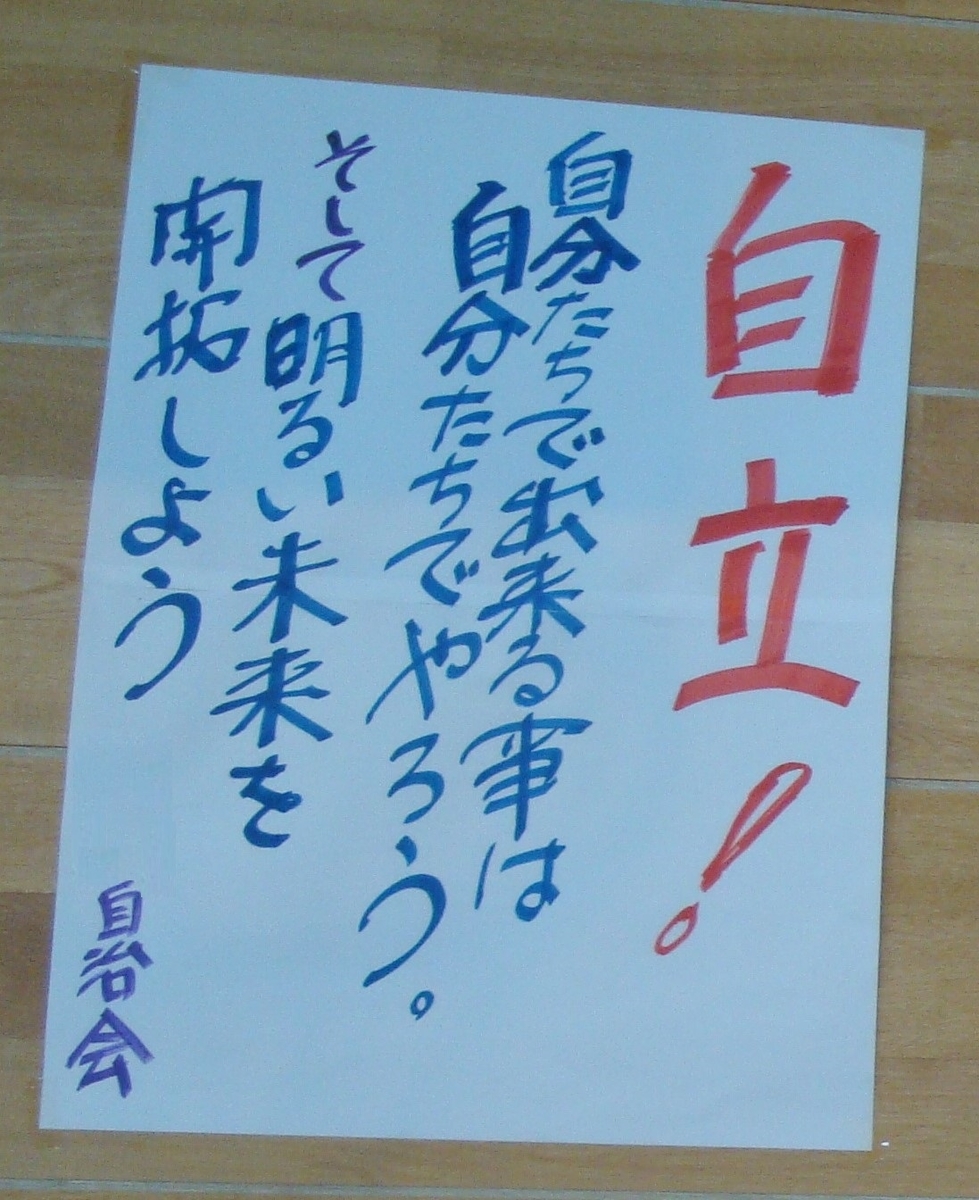 自立！
自分たちで出来る事は
自分たちでやろう。
そして明るい未来を
開拓しよう
自治会